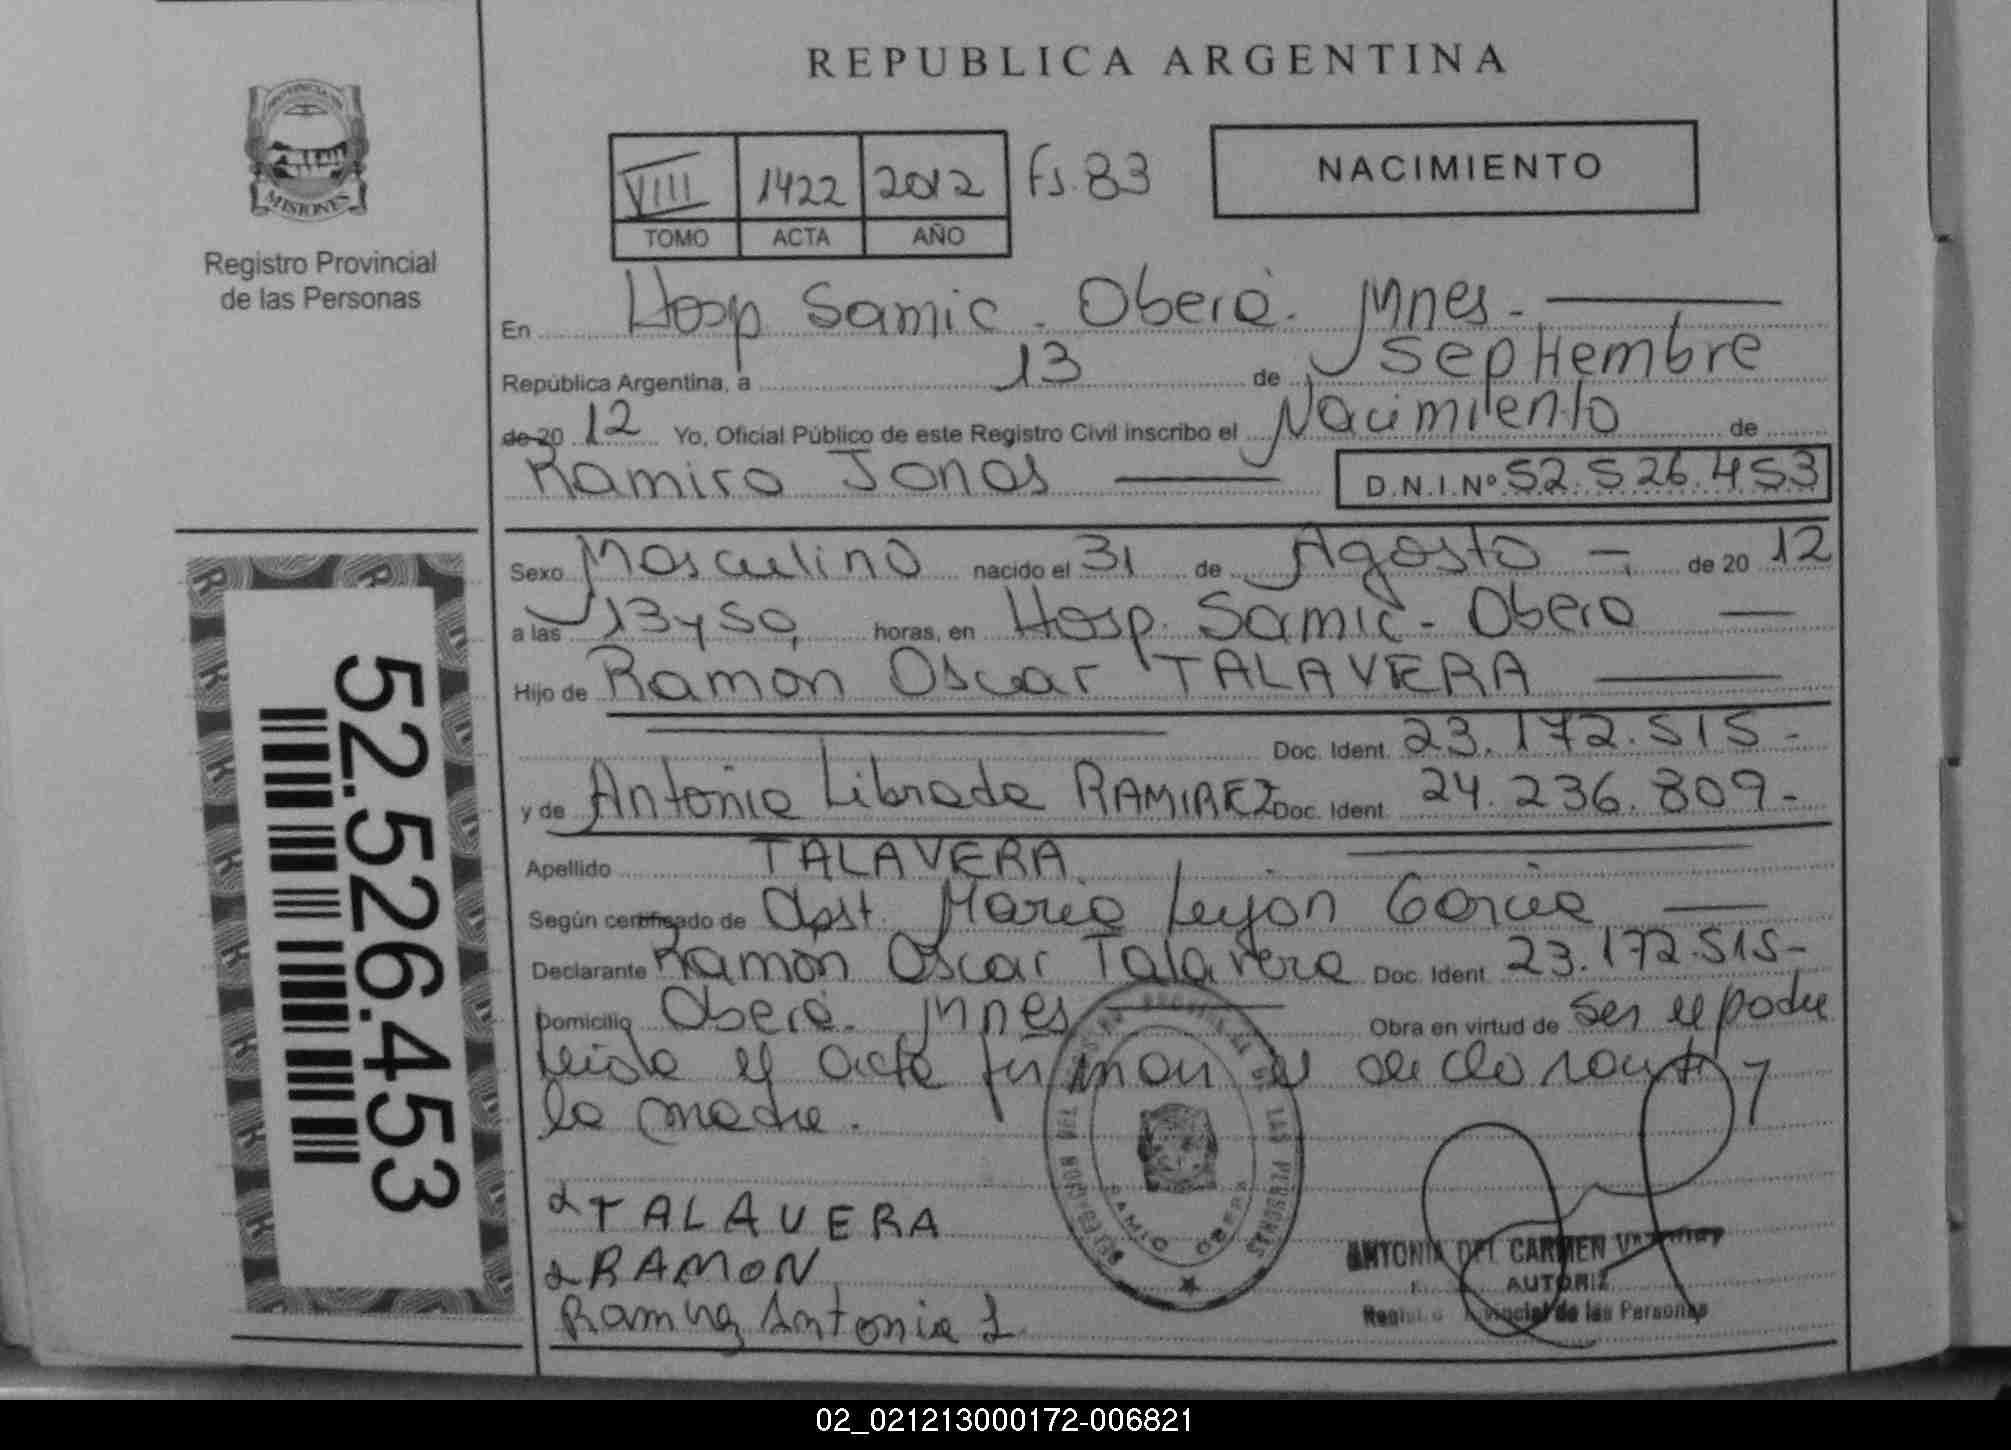 REPUBLICA ARGENTINA
PROVINCIA DE
MISIONES
Registro Provincial
de las Personas
VIII 1422 2012 Fs. 83
TOMO ACTA AÑO
NACIMIENTO
En Hosp Samic. Oberá. Mnes.
República Argentina, a 13 de Septiembre
de 20 12 Yo, Oficial Público de este Registro Civil inscribo el Nacimiento de
Ramiro Jonas D.N.I.Nº 52.526.453
Sexo Masculino nacido el 31 de Agosto de 20 12
a las 13 y 50 horas, en Hosp. Samic - Obera
Hijo de Ramon Oscar TALAVERA
Doc. Ident. 23.172.515-
y de Antonia Librada RAMIREZ Doc. Ident. 24.236.809-
Apellido TALAVERA
Según certificado de Obst. Maria García
Declarante Ramon Oscar Talavera Doc. Ident. 23.172.515-
Domicilio Oberá. Mnes Obra en virtud de ser el padre
leida el acta firman el declarante y
la madre.
TALAVERA
RAMON
Ramirez Antonia L
52.526.453
DE LAS PERSONAS
OBERA
ANTONIA DEL CARMEN
AUTORIZ
de las Personas
02_021213000172-006821